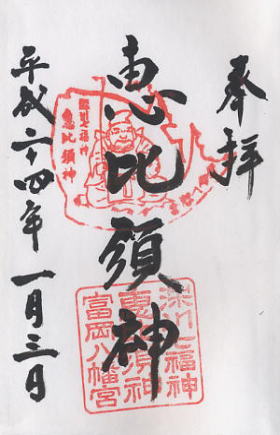 奉拝
恵比須神
平成二十四年一月三日
深川七福神
恵比須神
深川七福神
恵比須神
富岡八幡宮